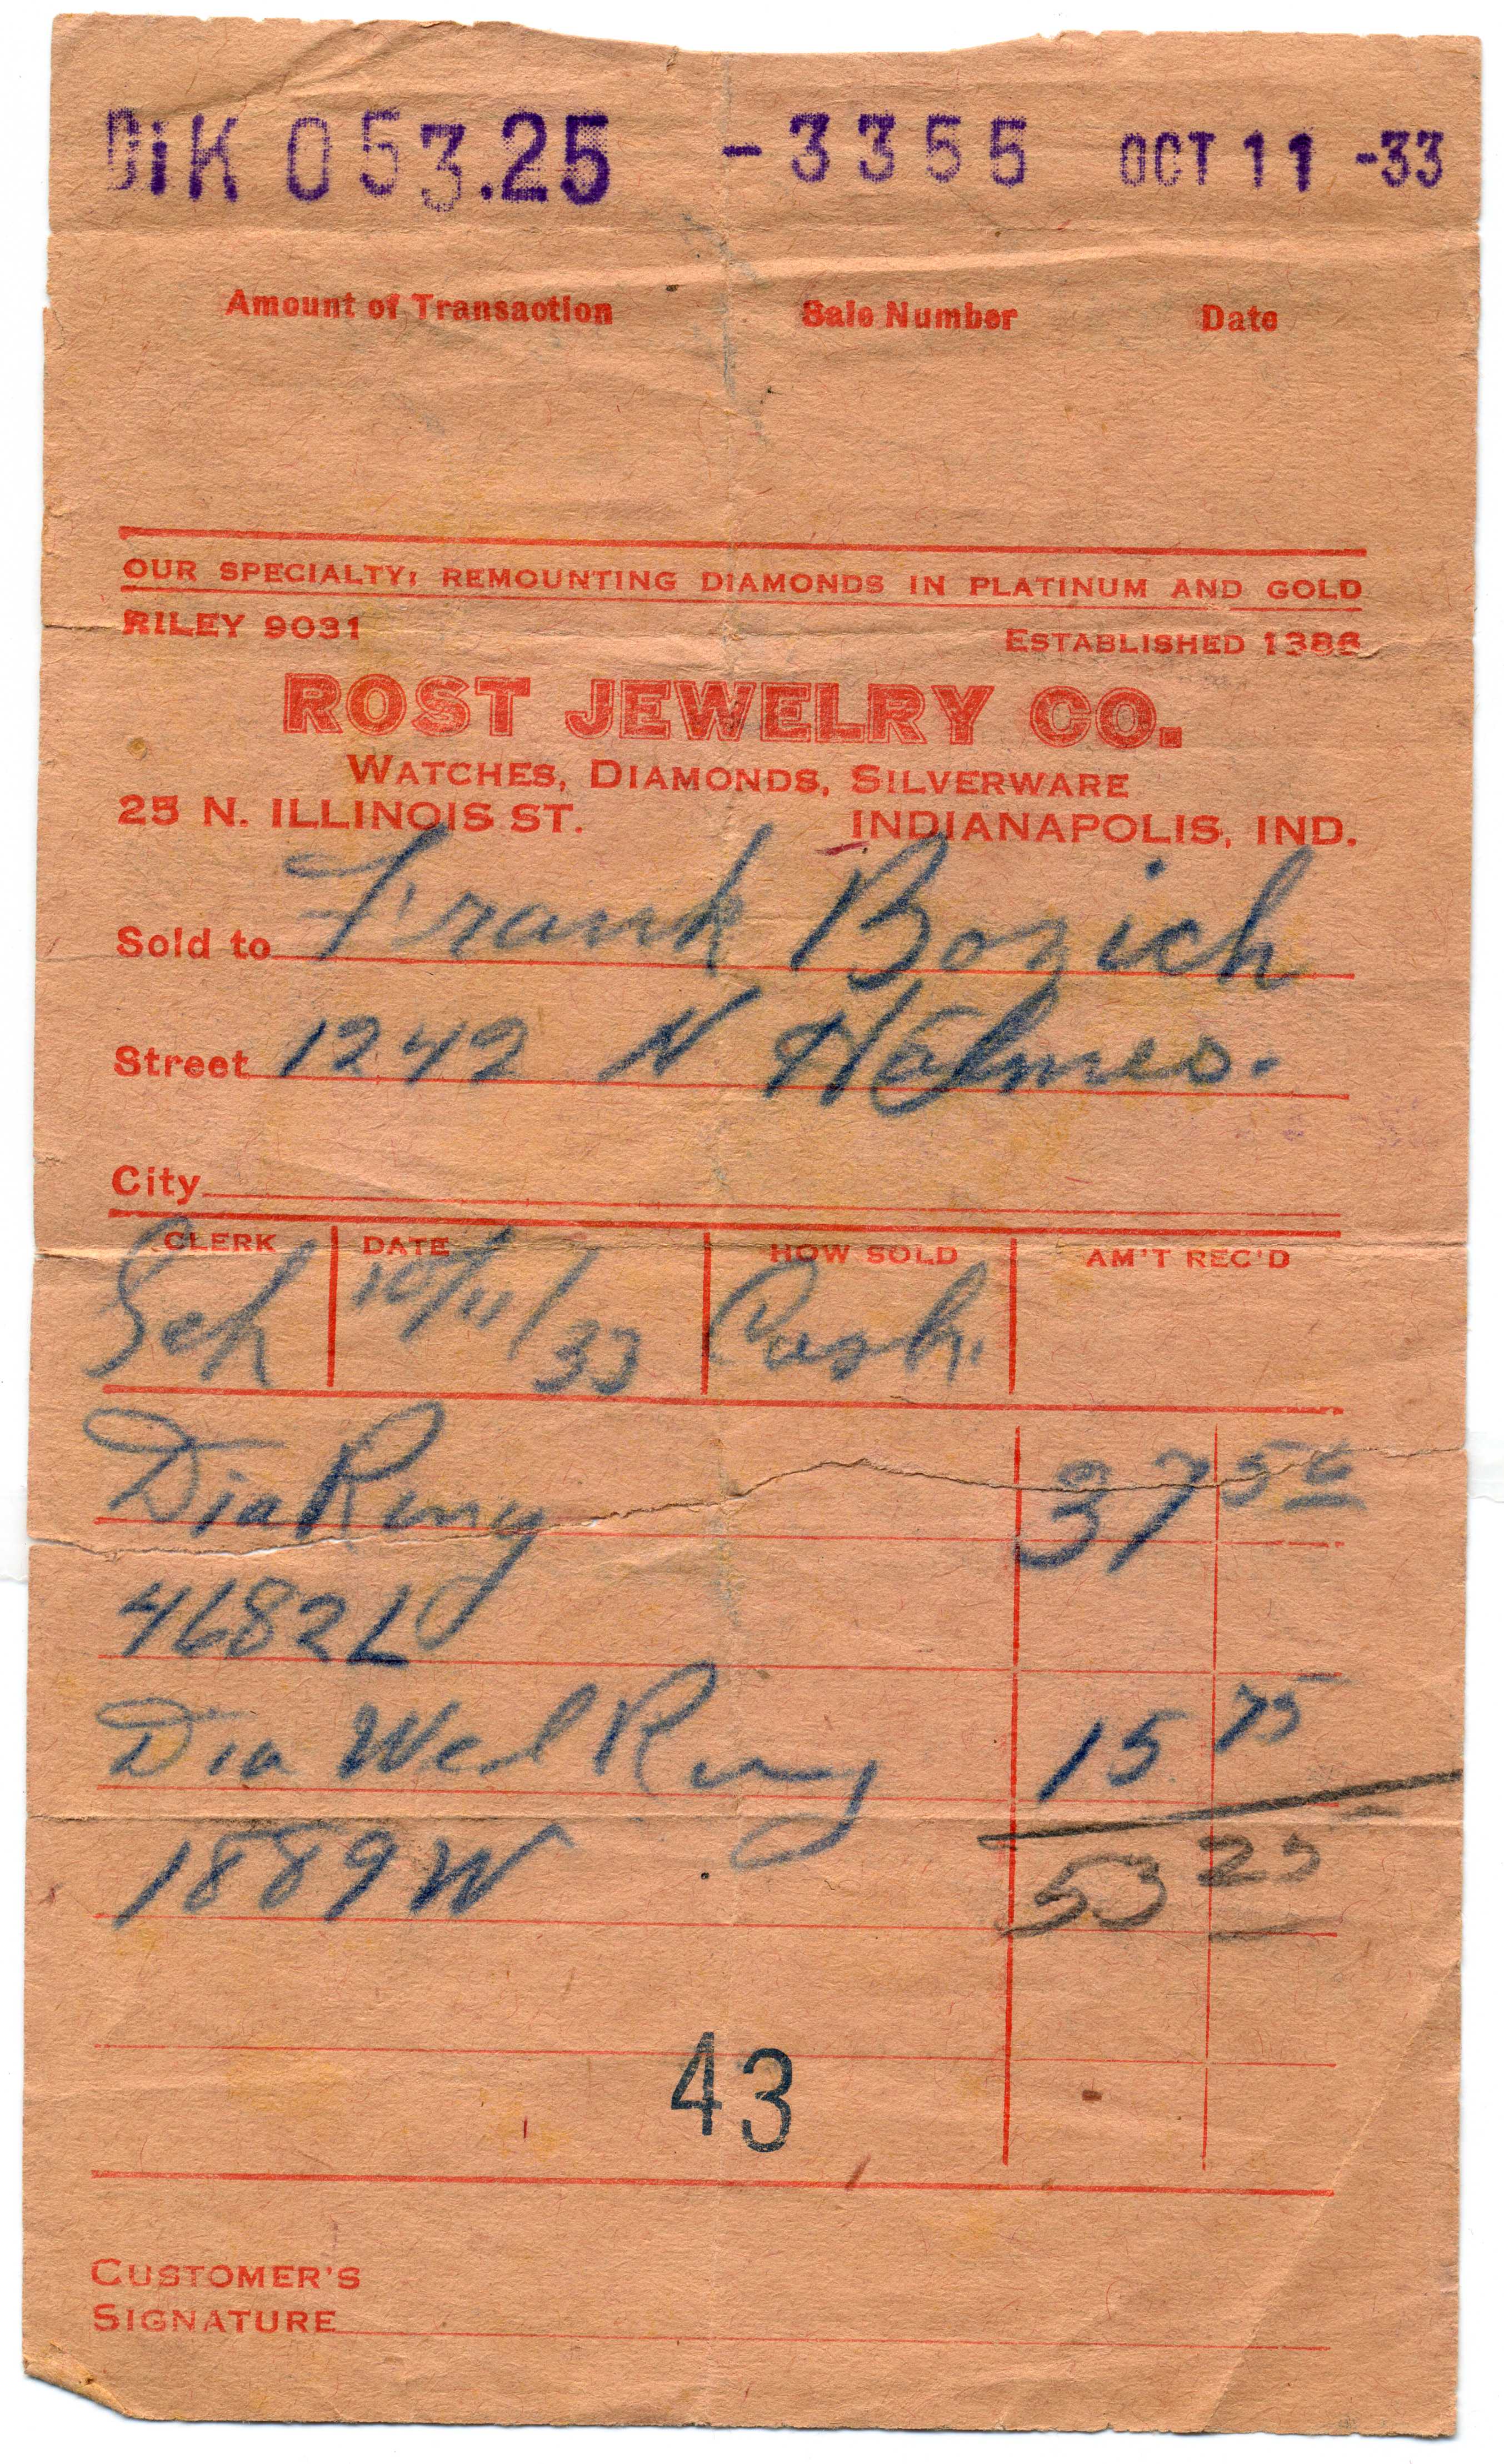 DiK 053.25 -3355 OCT 11 -33
Amount of Transaction Sale Number Date
OUR SPECIALTY: REMOUNTING DIAMONDS IN PLATINUM AND GOLD
RILEY 9031 ESTABLISHED 1886
ROST JEWELRY CO.
WATCHES, DIAMONDS, SILVERWARE
25 N. ILLINOIS ST. INDIANAPOLIS, IND.
Sold to Frank Bozich
Street 1242 N Holmes.
City
CLERK DATE HOW SOLD AM'T REC'D
Sch 10/11/33 Cash.
Dia Ring 37 50
4682L
Dia Wed Ring 15 75
1889W 53 25
43
CUSTOMER'S
SIGNATURE